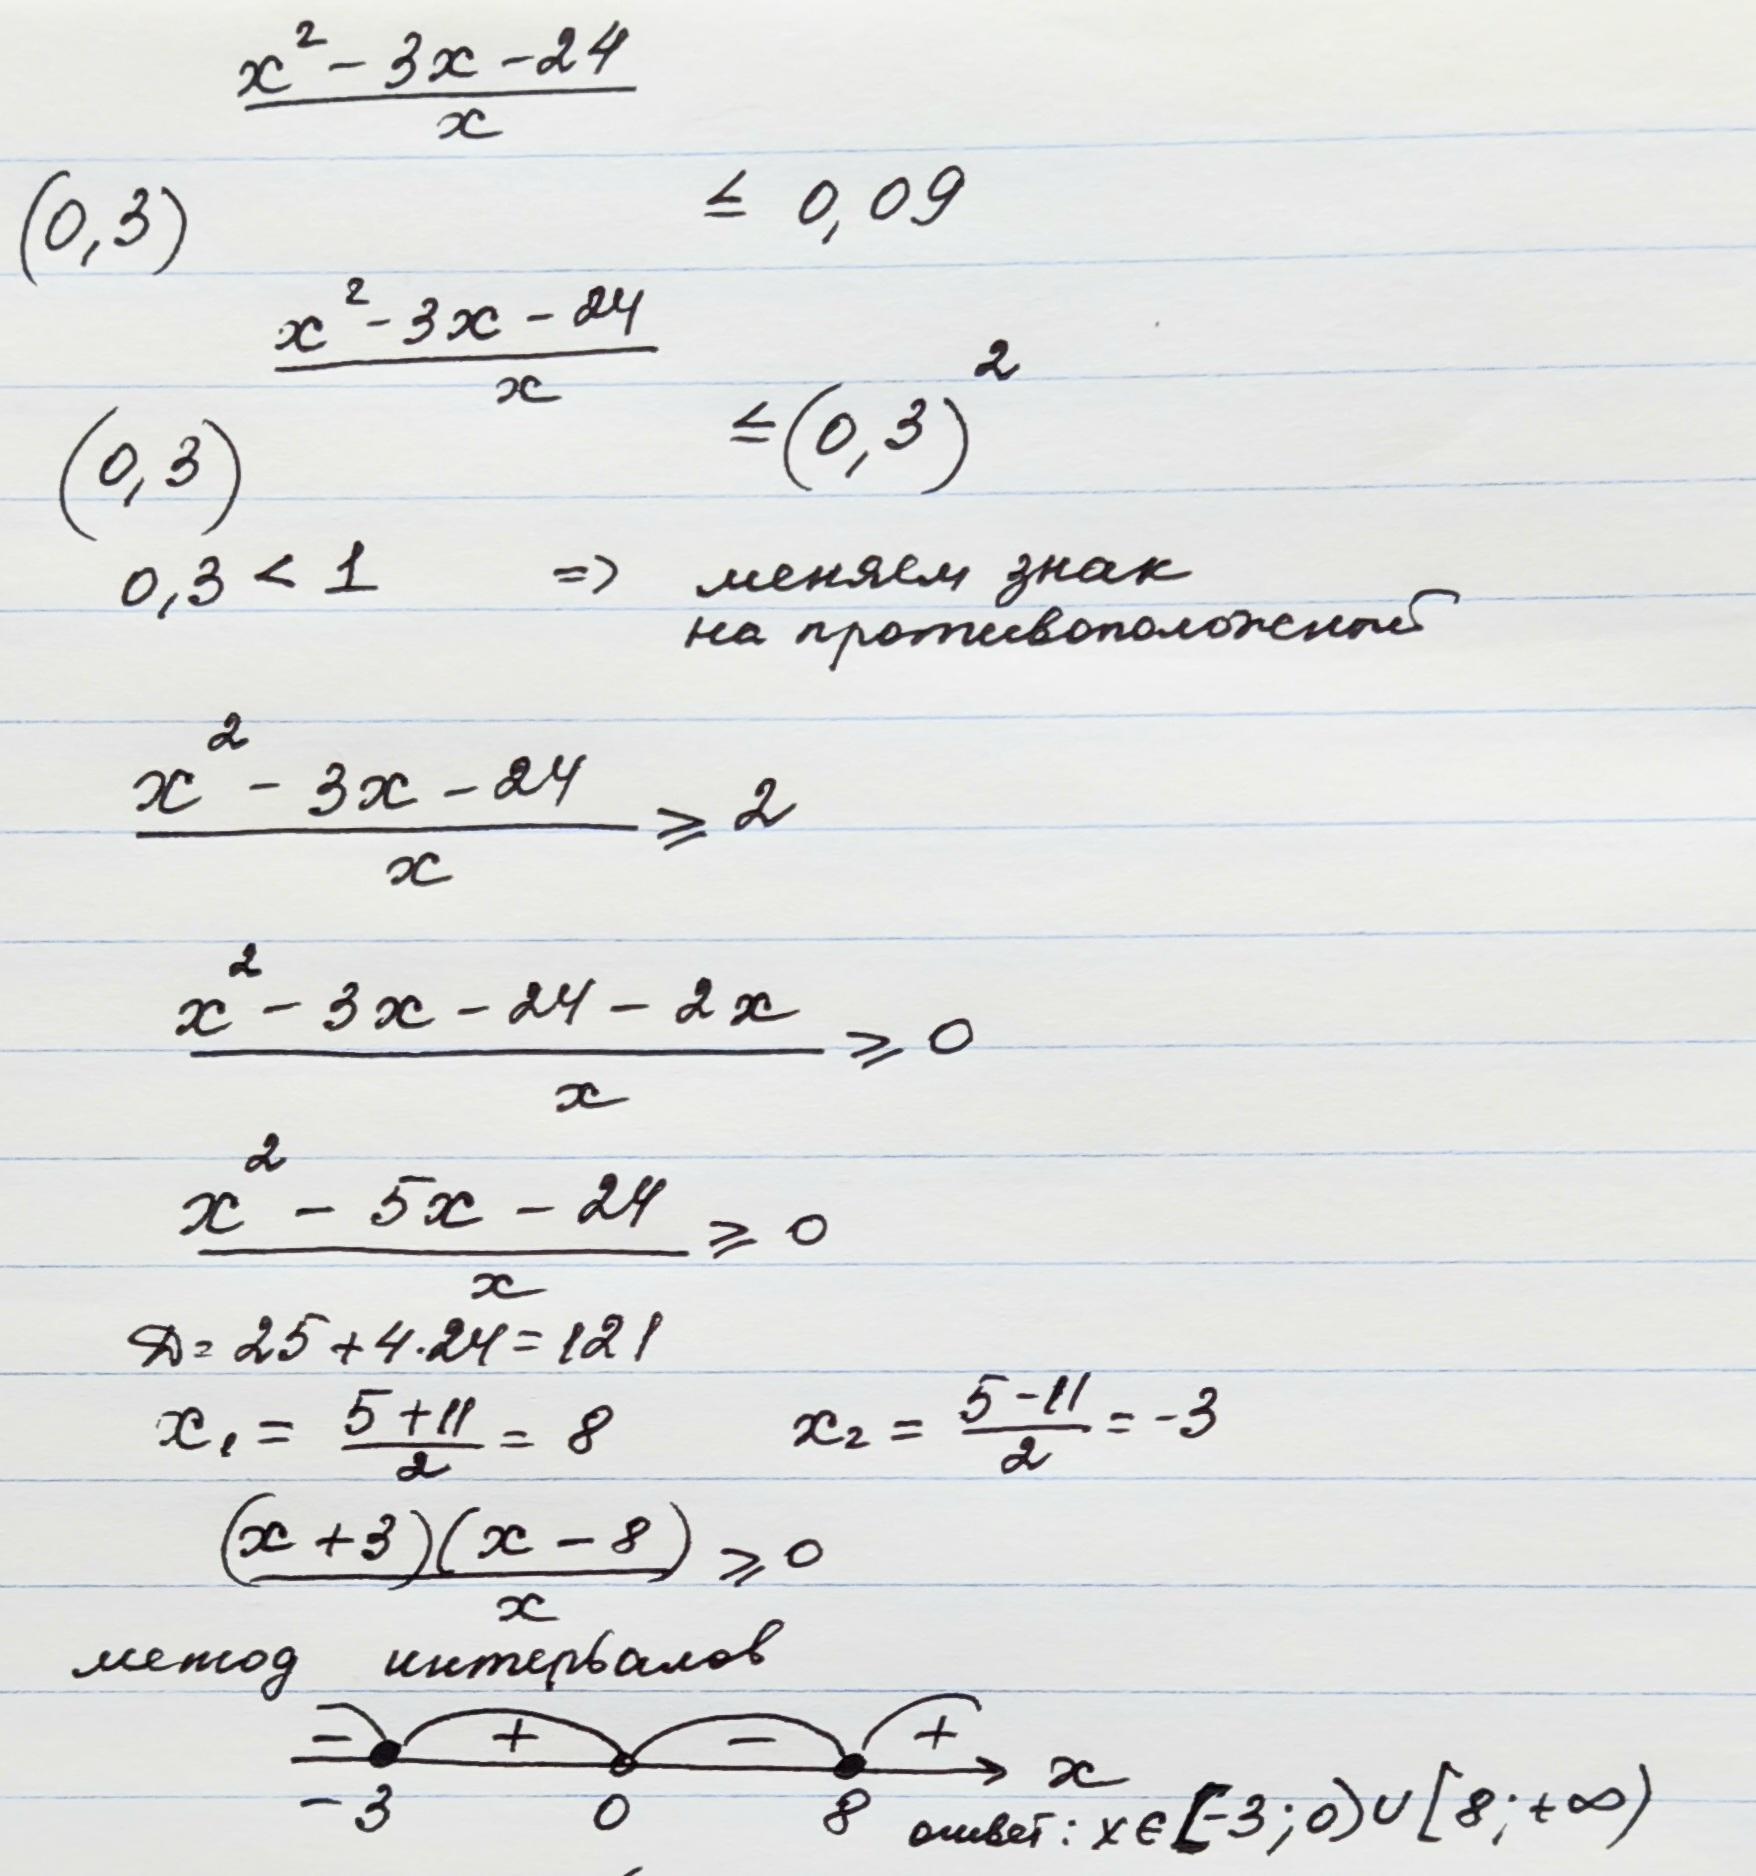 (0,3)^((x² - 3x - 24)/x) ≤ 0,09
(0,3)^((x² - 3x - 24)/x) ≤ (0,3)²
0,3 < 1 => меняем знак
на противоположный
(x² - 3x - 24)/x ⩾ 2
(x² - 3x - 24 - 2x)/x ⩾ 0
(x² - 5x - 24)/x ⩾ 0
D = 25 + 4·24 = 121
x₁ = (5 + 11)/2 = 8 x₂ = (5 - 11)/2 = -3
((x + 3)(x - 8))/x ⩾ 0
метод интервалов
- + - +
-3 0 8 x
ответ: x ∈ [-3; 0) ∪ [8; +∞)